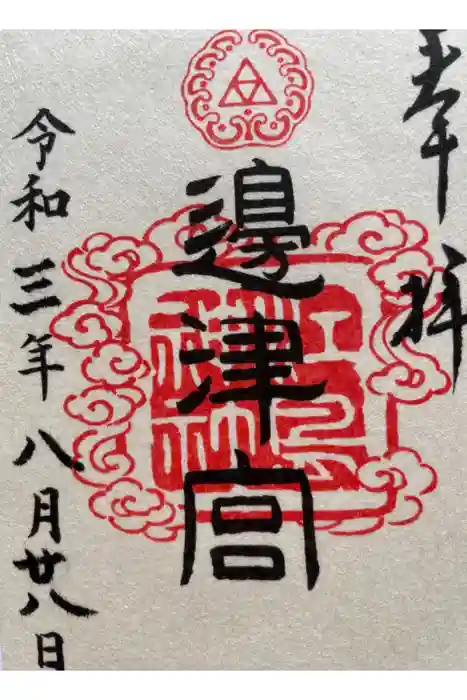 奉拝
邊津宮
令和三年八月廿八日